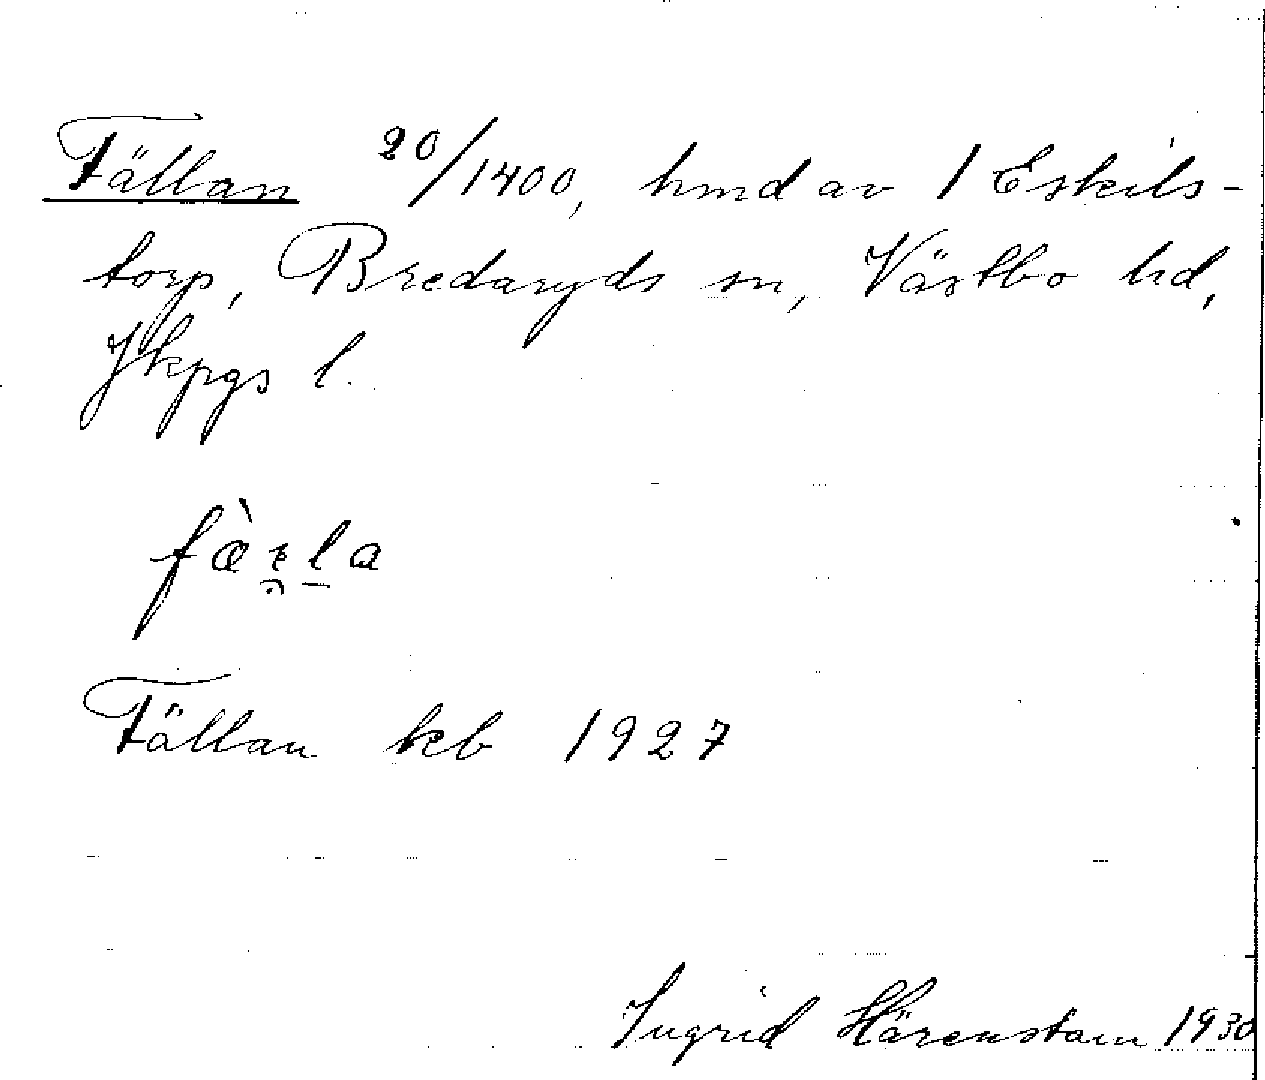 Fällan 20/1400, hmd av 1 Eskils-
torp, Bredaryds sn, Västbo hd,
Jkpgs l.
Fällan kb 1927
Ingrid Härenstam 1930